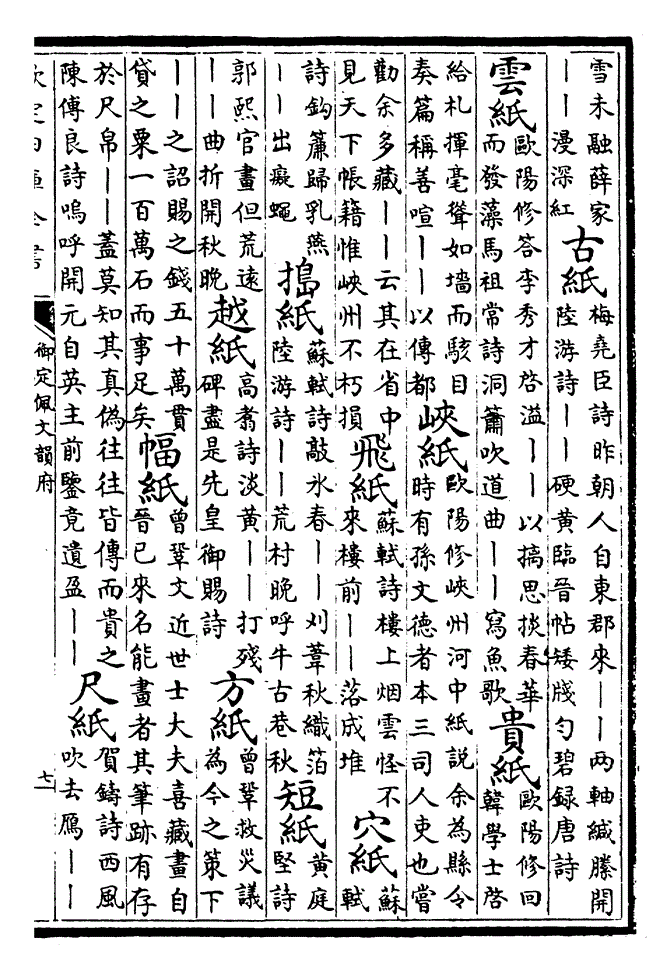 雪未融薛家
——漫深紅
古紙
梅堯臣詩昨朝人自東郡來——两軸緘縢開
陸游詩——硬黄臨晉帖矮牋勻碧録唐詩
雲紙
歐陽修答李秀才啓溢——以搞思掞春華
而發藻馬祖常詩洞簫吹道曲——寫魚歌
貴紙
歐陽修回
韓學士啓
給札揮毫聳如墻而駭目
奏篇稱善喧——以傳都
峽紙
歐陽修峽州河中紙説余為縣令
時有孫文德者本三司人吏也嘗
勸余多藏——云其在省中
見天下帳籍惟峽州不朽損
飛紙
蘇軾詩樓上烟雲怪不
來樓前——落成堆
穴紙
蘇
軾
詩鈎簾歸乳燕
——出癡蠅
搗紙
蘇軾詩敲氷春——刈葦秋織箔
陸游詩——荒村晚呼牛古巷秋
短紙
黄庭
堅詩
郭熙官畫但荒遠
——曲折開秋晚
越紙
高翥詩淡黄——打殘
碑盡是先皇御賜詩
方紙
曾鞏救災議
為今之策下
——之詔賜之錢五十萬貫
貸之粟一百萬石而事足矣
幅紙
曾鞏文近世士大夫喜藏畫自
晉已來名能畫者其筆跡有存
於尺帛——蓋莫知其真偽往往皆傳而貴之
陳傅良詩嗚呼開元自英主前鑒竟遺盈——
尺紙
賀鑄詩西風
吹去鴈——
欽定四庫全書
御定佩文韻府